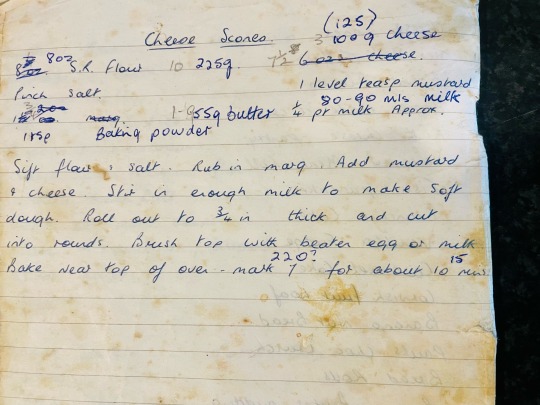 (125)
Cheese Scones. 100g cheese
8oz S.R. Flour 225g 6 oz cheese.
Pinch salt. 1 level teasp mustard
80-90 mls milk
marg 55g butter 1/4 pt milk Approx.
1 tsp Baking powder
Sift flour & salt. Rub in marg Add mustard
& cheese. Stir in enough milk to make soft
dough. Roll out to 3/4 in thick and cut
into rounds. Brush top with beaten egg or milk
220? 15
Bake near top of oven - mark 7 for about 10 mins